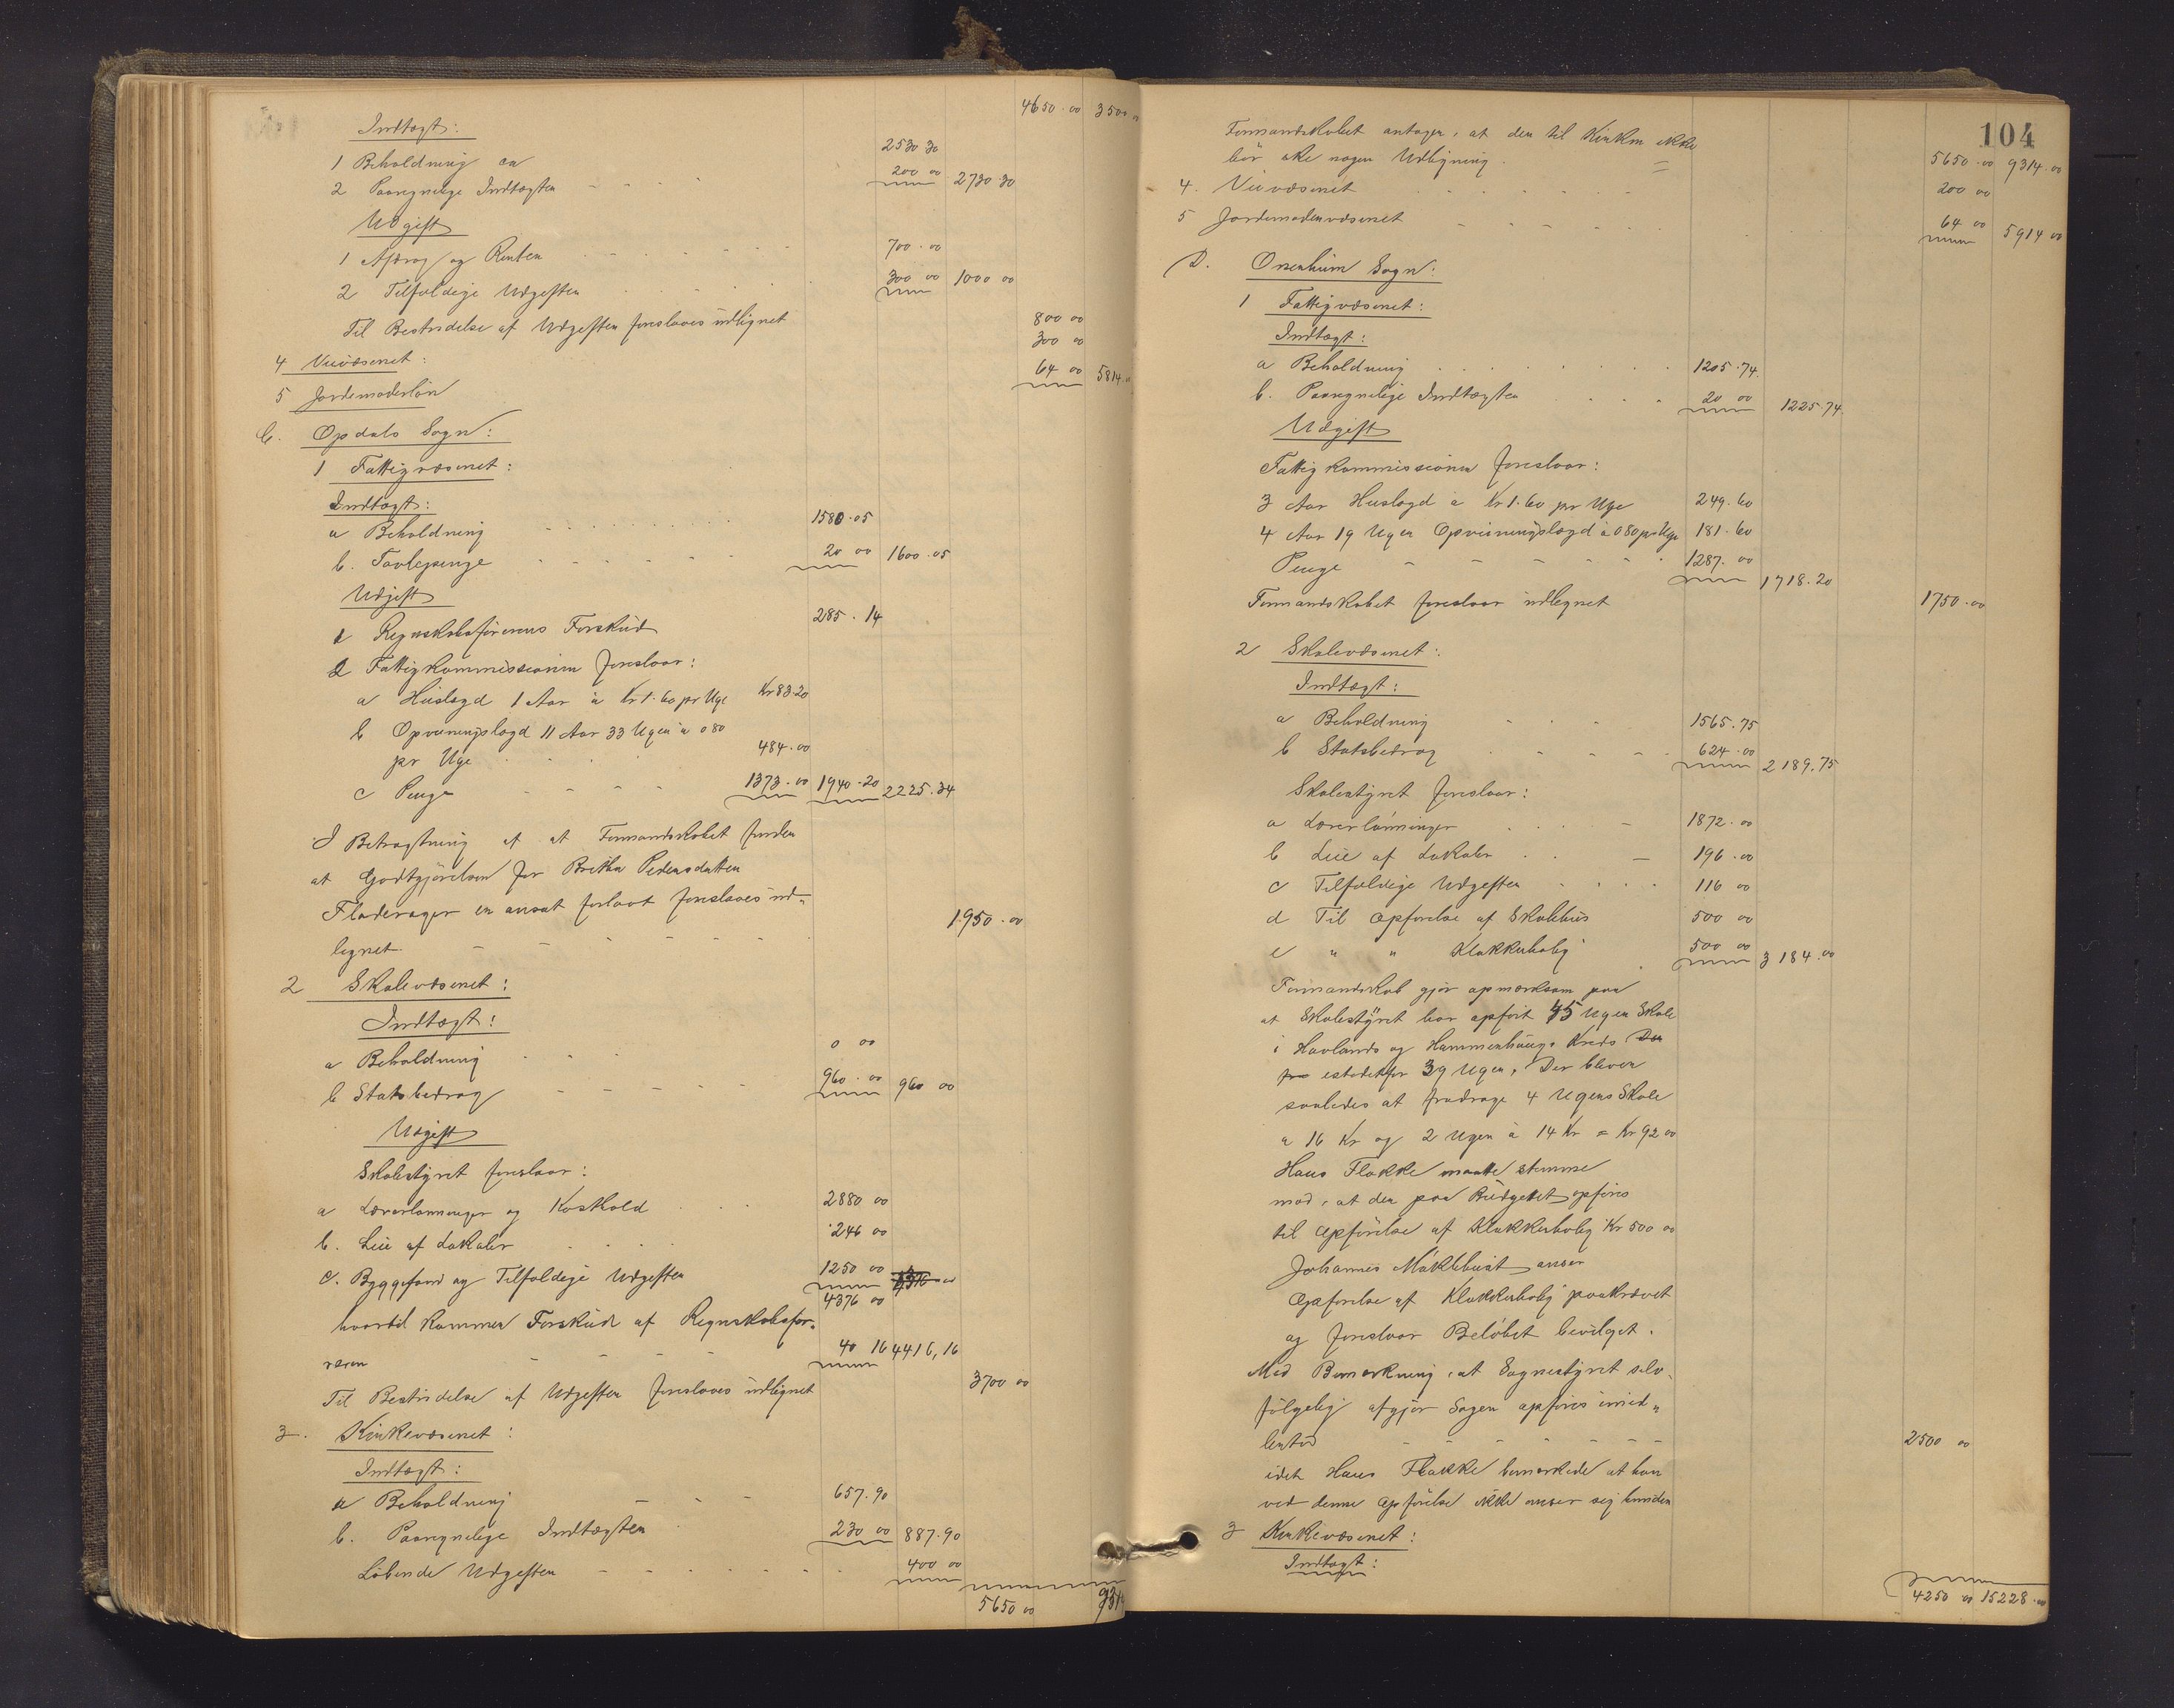 4650.00 3500
Indtægt:
1 Beholdning ca 2530 30
2 Paaregnelige Indtægter 200 00 2730.30
Udgift
1 Afdrag og Renter 700.00
2 Tilfældige Udgifter 300 00 1000 00
Til Bestridelse af Udgifter foreslaaes udlignet 800 00
4 Veivæsenet: 300 00
5 Jordemoderløn 64 00 5814.
C. Opdals Sogn:
1 Fattigvæsenet:
Indtægt:
a Beholdning 1580.05
b. Tavlepenge 20 00 1600.05
Udgift
1 Regnskabsførerens Forskud 285.14
2 Fattigkommissionen foreslaar:
a Huslægd 1 Aar à Kr 1.60 pr Uge Kr 83.20
b Opvisningslægd 11 Aar 33 Uger à 0 80
pr Uge 484.00
c Penge 1373.00 1940.20 2225.34
I Betragtning af at Formandskabet finder
at Godtgjørelsen for Brithe Pedersdatter
Fladerager er ansat forlavt foreslaaes ud-
lignet 1950.00
2 Skolevæsenet:
Indtægt:
a Beholdning 0 00
b Statsbedrag 960.00 960 00
Udgift
Skolestyret foreslaar:
a Lærerlønninger og Kosthold 2880 00
b. Leie af Lokaler 246 00
c. Byggefond og Tilfældige Udgifter 1250 00
4376 00
hvortil kommer Forskud af Regnskabsfø-
reren 40 16 4416,16
Til Bestridelse af Udgifter foreslaaes udlignet 3700 00
3. Kirkevæsenet:
Indtægt:
a Beholdning 657.90
b. Paaregnelige Indtægter 230 00 887.90
Løbende Udgifter 400 00
5650 00 9314
104
Formandskabet antager, at der til Kirken ikke
bør ske nogen Udligning. 5650.00 9314.00
4. Veivæsenet 200 00
5 Jordemodervæsenet 64 00 5914 00
D. Onenheim Sogn:
1 Fattigvæsenet:
Indtægt:
a Beholdning 1205.74
b. Paaregnelige Indtægter 20 00 1225.74
Udgift
Fattigkommissionen foreslaar:
3 Aar Huslægd à Kr 1.60 pr Uge 249.60
4 Aar 19 Uger Opvisningslægd à 0 80 pr Uge 181.60
Penge 1287.00 1718.20
Formandskabet foreslaar udlignet 1750.00
2 Skolevæsenet:
Indtægt:
a Beholdning 1565.75
b Statsbedrag 624.00 2189.75
Skolestyret foreslaar:
a Lærerlønninger 1872.00
b Leie af Lokaler 196.00
c Tilfældige Udgifter 116 00
d Til Opførelse af Skolehus 500 00
e " " Klokkerbolig 500 00 3184.00
Formandskab gjør opmærksom paa
at Skolestyret har opført 45 Uger Skole
i Havlands og Hammershaugs Kreds Der
for istedetfor 39 Uger. Der bliver
saaledes at fradrage 4 Ugers Skole
a 16 Kr og 2 Uger à 14 Kr = Kr 92 00
Hans Flakke maatte stemme
mod, at der paa Budgettet opføres
til Opførelse af Klokkerbolig Kr 500 00
Johannes Mäklebust anser
Opførelse af Klokkerbolig paakrævet
og foreslaar Beløbet bevilget.
Med Bemærkning, at Sognestyret selv-
følgelig afgjør Sagen opføres imid-
lertid 2500 00
idet Hans Flakke bemærkede at han
ved denne Opførelse ikke anser sig bunden
3 Kirkevæsenet:
Indtægt:
4250 00 15228.00